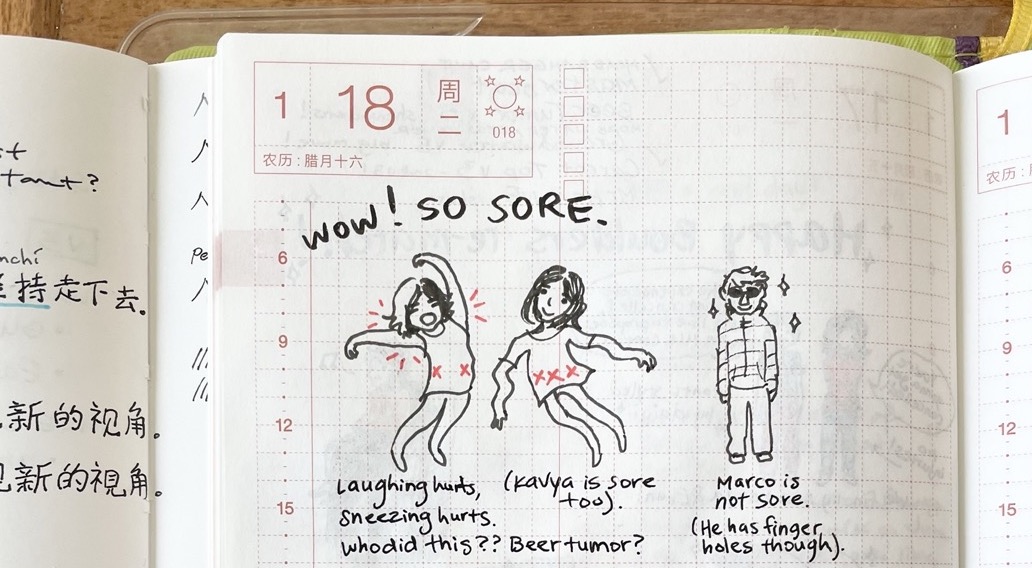 st
tant?
nchí
持走下去。
新的视角。
见新的视角。
pe
1
18
周二
018
农历：腊月十六
WOW! SO SORE.
6
9
12
15
Laughing hurts,
sneezing hurts.
who did this?? Beer tumor?
(Kavya is sore
too).
Marco is
not sore.
(He has finger
holes though).
1
农历：
6
9
12
15